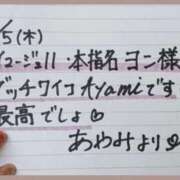 /5(木)
イユージュ11・本指名 ヨン様
ゲッチワイフ Ayamiです
最高でしょ♡
あやみより